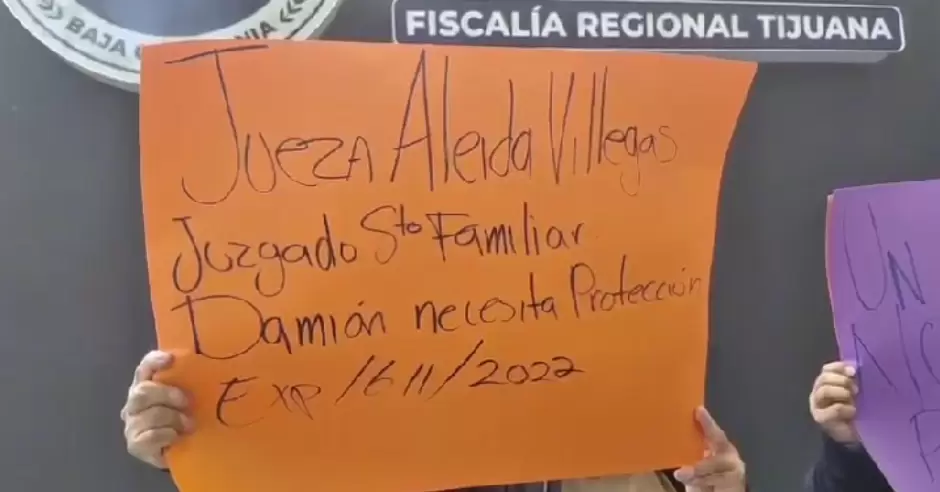 BAJA
FISCALÍA REGIONAL TIJUANA
Jueza Aleida Villegas
Juzgado 5to Familiar
Damián necesita Protección
Exp/1611/2022
UN